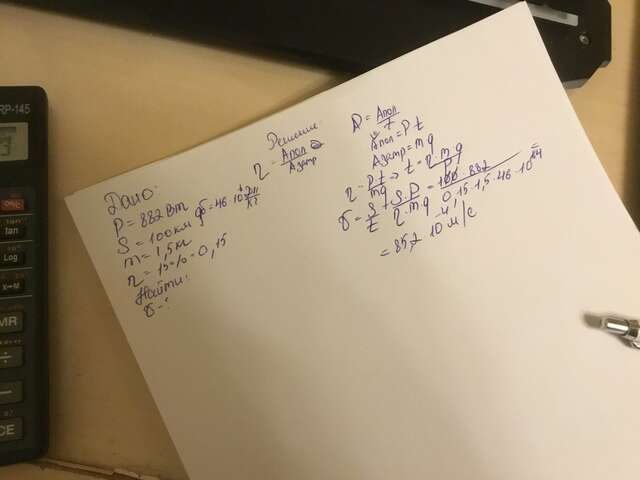 RP-145
tan
Log
X→M
MR
÷
−
CE
Дано:
P = 882 Вт
S = 100 км q = 46·10⁶ Дж/кг
m = 1,5 кг
η = 15% = 0,15
Найти:
υ - ?
Решение:
η = Aпол/Aзатр
P = Aпол/t
Aпол = P t
Aзатр = m q
η = Pt/mq ⇒ t = η·m q/P
υ = S/t = S P/η·m q = 100·882/0,15·1,5·46·10⁴ =
= 85,2 10⁻⁴ м/с